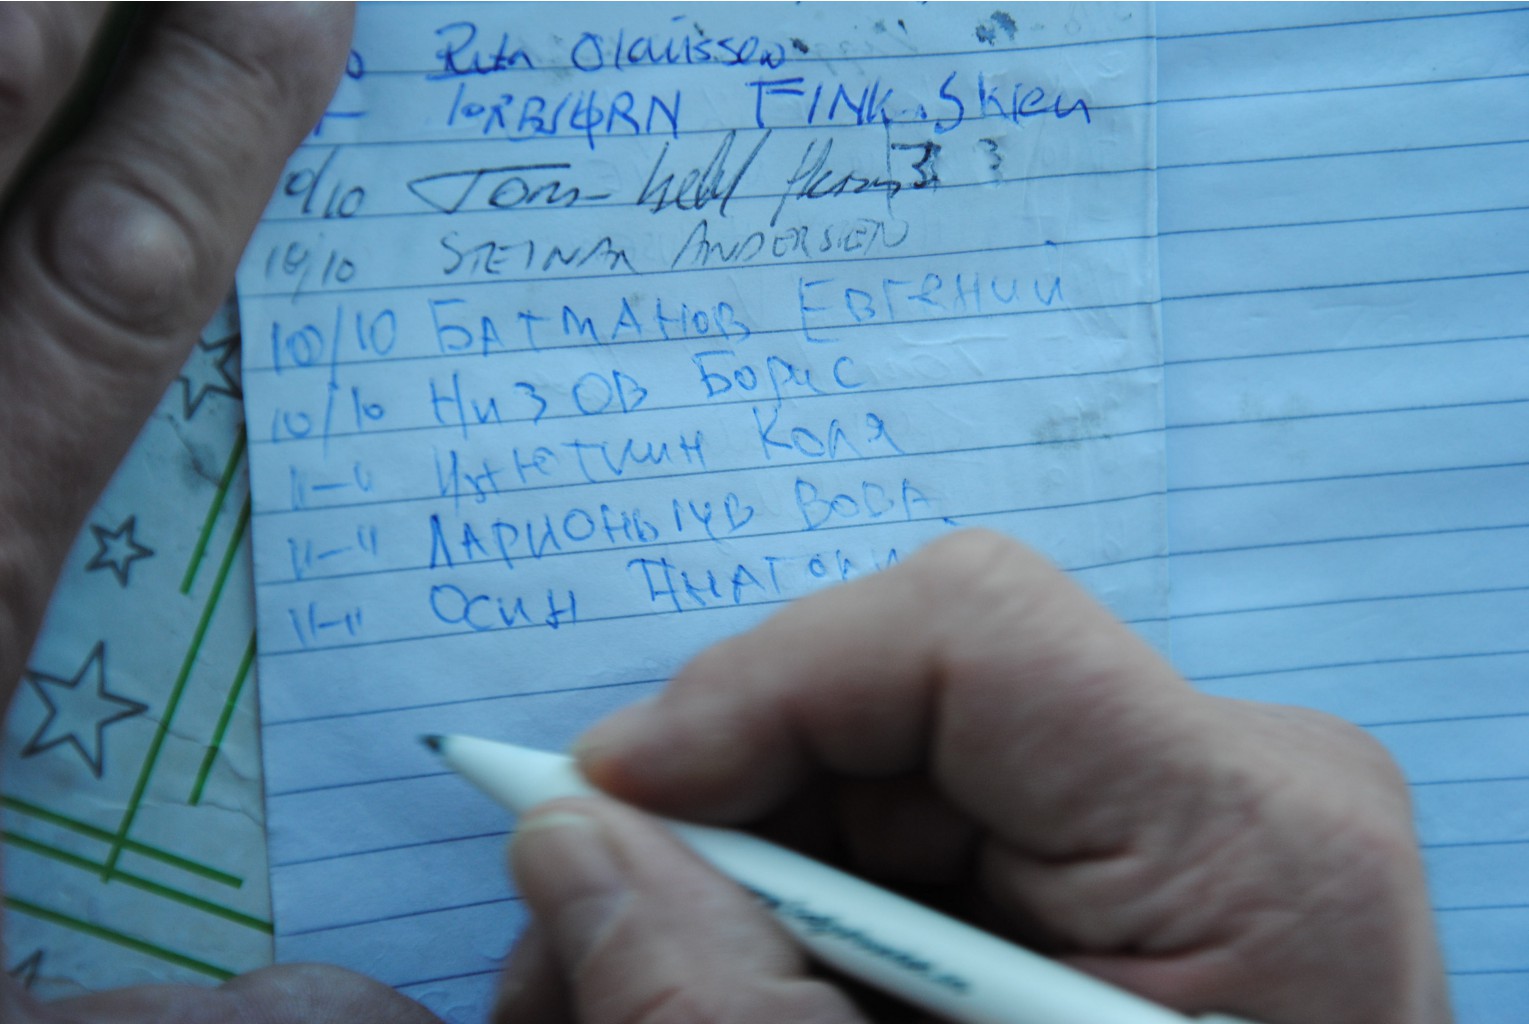 Olaussen
TORBJØRN FINK. Skien
/10 Tom-
10/10 STEINAR ANDERSEN
10/10 БАТМАНОВ ЕВГЕНИЙ
10/10 НИЗОВ БОРИС
"-" Коля
"-" ВОВА
"-" ОСИН АНАТОЛИ